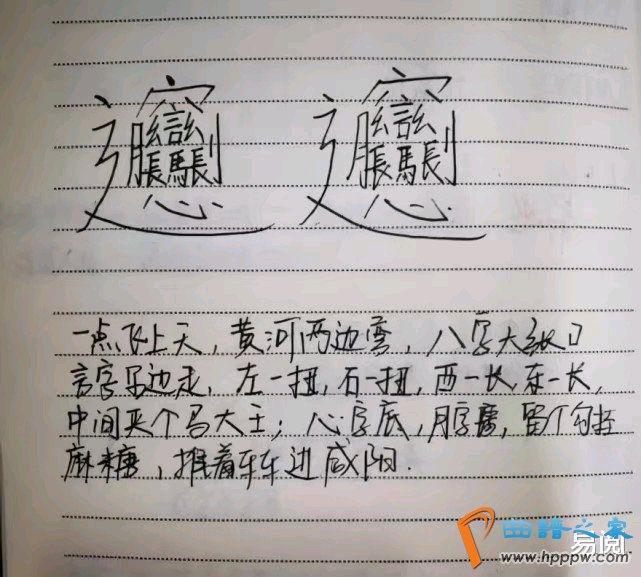 𰻞 𰻞
一点飞上天，黄河两边弯，八字大张口
言字写边走，左一扭，右一扭，西一长，东一长，
中间夹个马大王；心字底，月字旁，留个勾挂
麻糖，推着车车边咸阳.
曲谱之家
易阅
www.hpppw.com